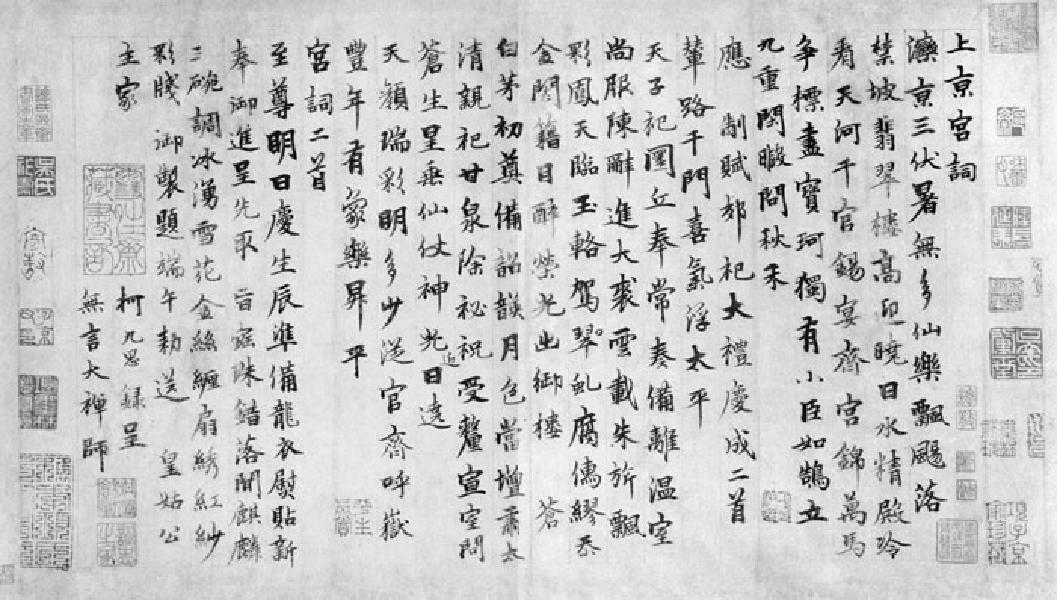 上京宮詞
灤京三伏暑無多仙樂飄颺落
禁坡翡翠樓高迎曉日水精殿冷
看天河千官錫宴齊宮錦萬馬
爭標盡寶珂獨有小臣如鵠立
九重閒暇問秋禾
應制賦郊祀大禮慶成二首
輦路千門喜氣浮太平
天子祀圜丘奉常奏備離溫室
尚服陳辭進大裘雲載朱旂飄
彩鳳天臨玉輅駕翠虬腐儒繆忝
金閨籍目醉榮光出御樓 蒼
白茅初奠備韶韺月色當壇肅太
清親祀甘泉除秘祝受釐宣室問
蒼生星垂仙仗神光近日遶
天顏瑞彩明多少從官齊呼嶽
豐年有象樂昇平
宮詞二首
至尊明日慶生辰準備龍衣熨貼新
奉御進呈先取旨寶珠錯落閒麒麟
三碗調冰湧雪花金絲纏扇綉紅紗
彩牋御製題端午勅送皇姑公
主家
柯九思錄呈
無言大禪師